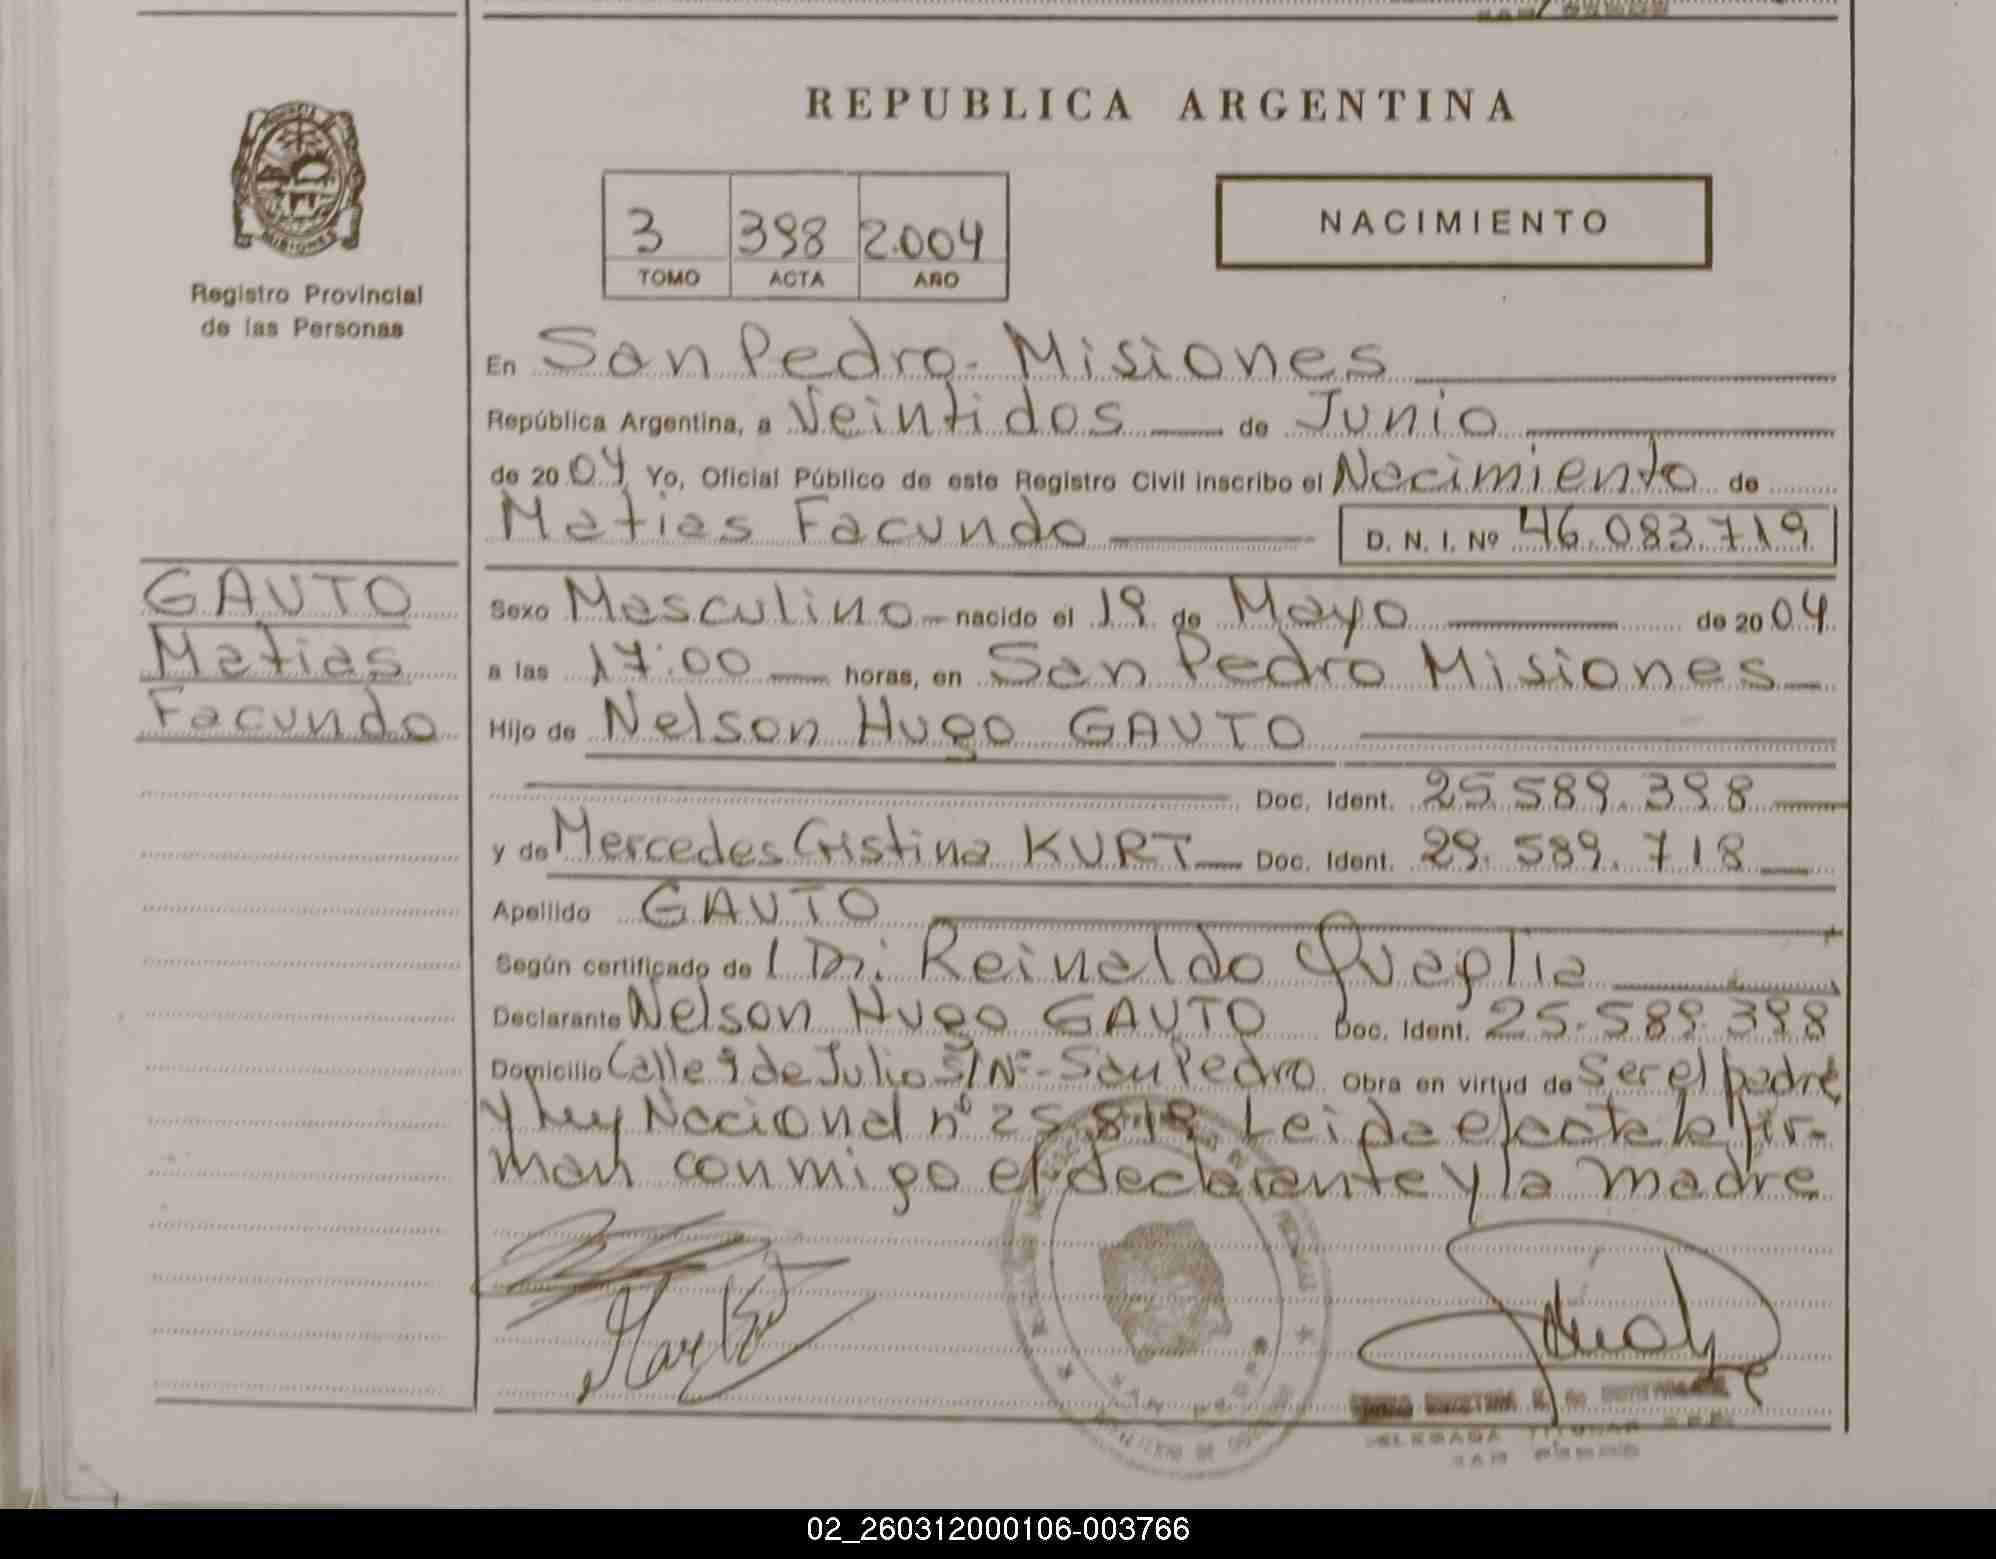 REPUBLICA ARGENTINA
MISIONES
Registro Provincial
de las Personas
3 398 2.004
TOMO ACTA AÑO
NACIMIENTO
En San Pedro - Misiones
República Argentina, a Veintidos de Junio
de 2004 Yo, Oficial Público de este Registro Civil inscribo el Nacimiento de
Matias Facundo D. N. I. Nº 46.083.719
GAUTO
Matias
Facundo
Sexo Masculino nacido el 19 de Mayo de 2004
a las 17:00 horas, en San Pedro Misiones
Hijo de Nelson Hugo GAUTO
Doc. Ident. 25.589.398
y de Mercedes Cristina KURT Doc. Ident. 29.589.718
Apellido GAUTO
Según certificado de l Dr. Reinaldo Quaglia
Declarante Nelson Hugo GAUTO Doc. Ident. 25.589.398
Domicilio Calle 9 de Julio S/Nº - San Pedro Obra en virtud de ser el padre
y Ley Nacional nº 25.819 Leida el acta la fir-
man conmigo el declarante y la madre
DELEGADA TITULAR
SAN PEDRO
02_260312000106-003766